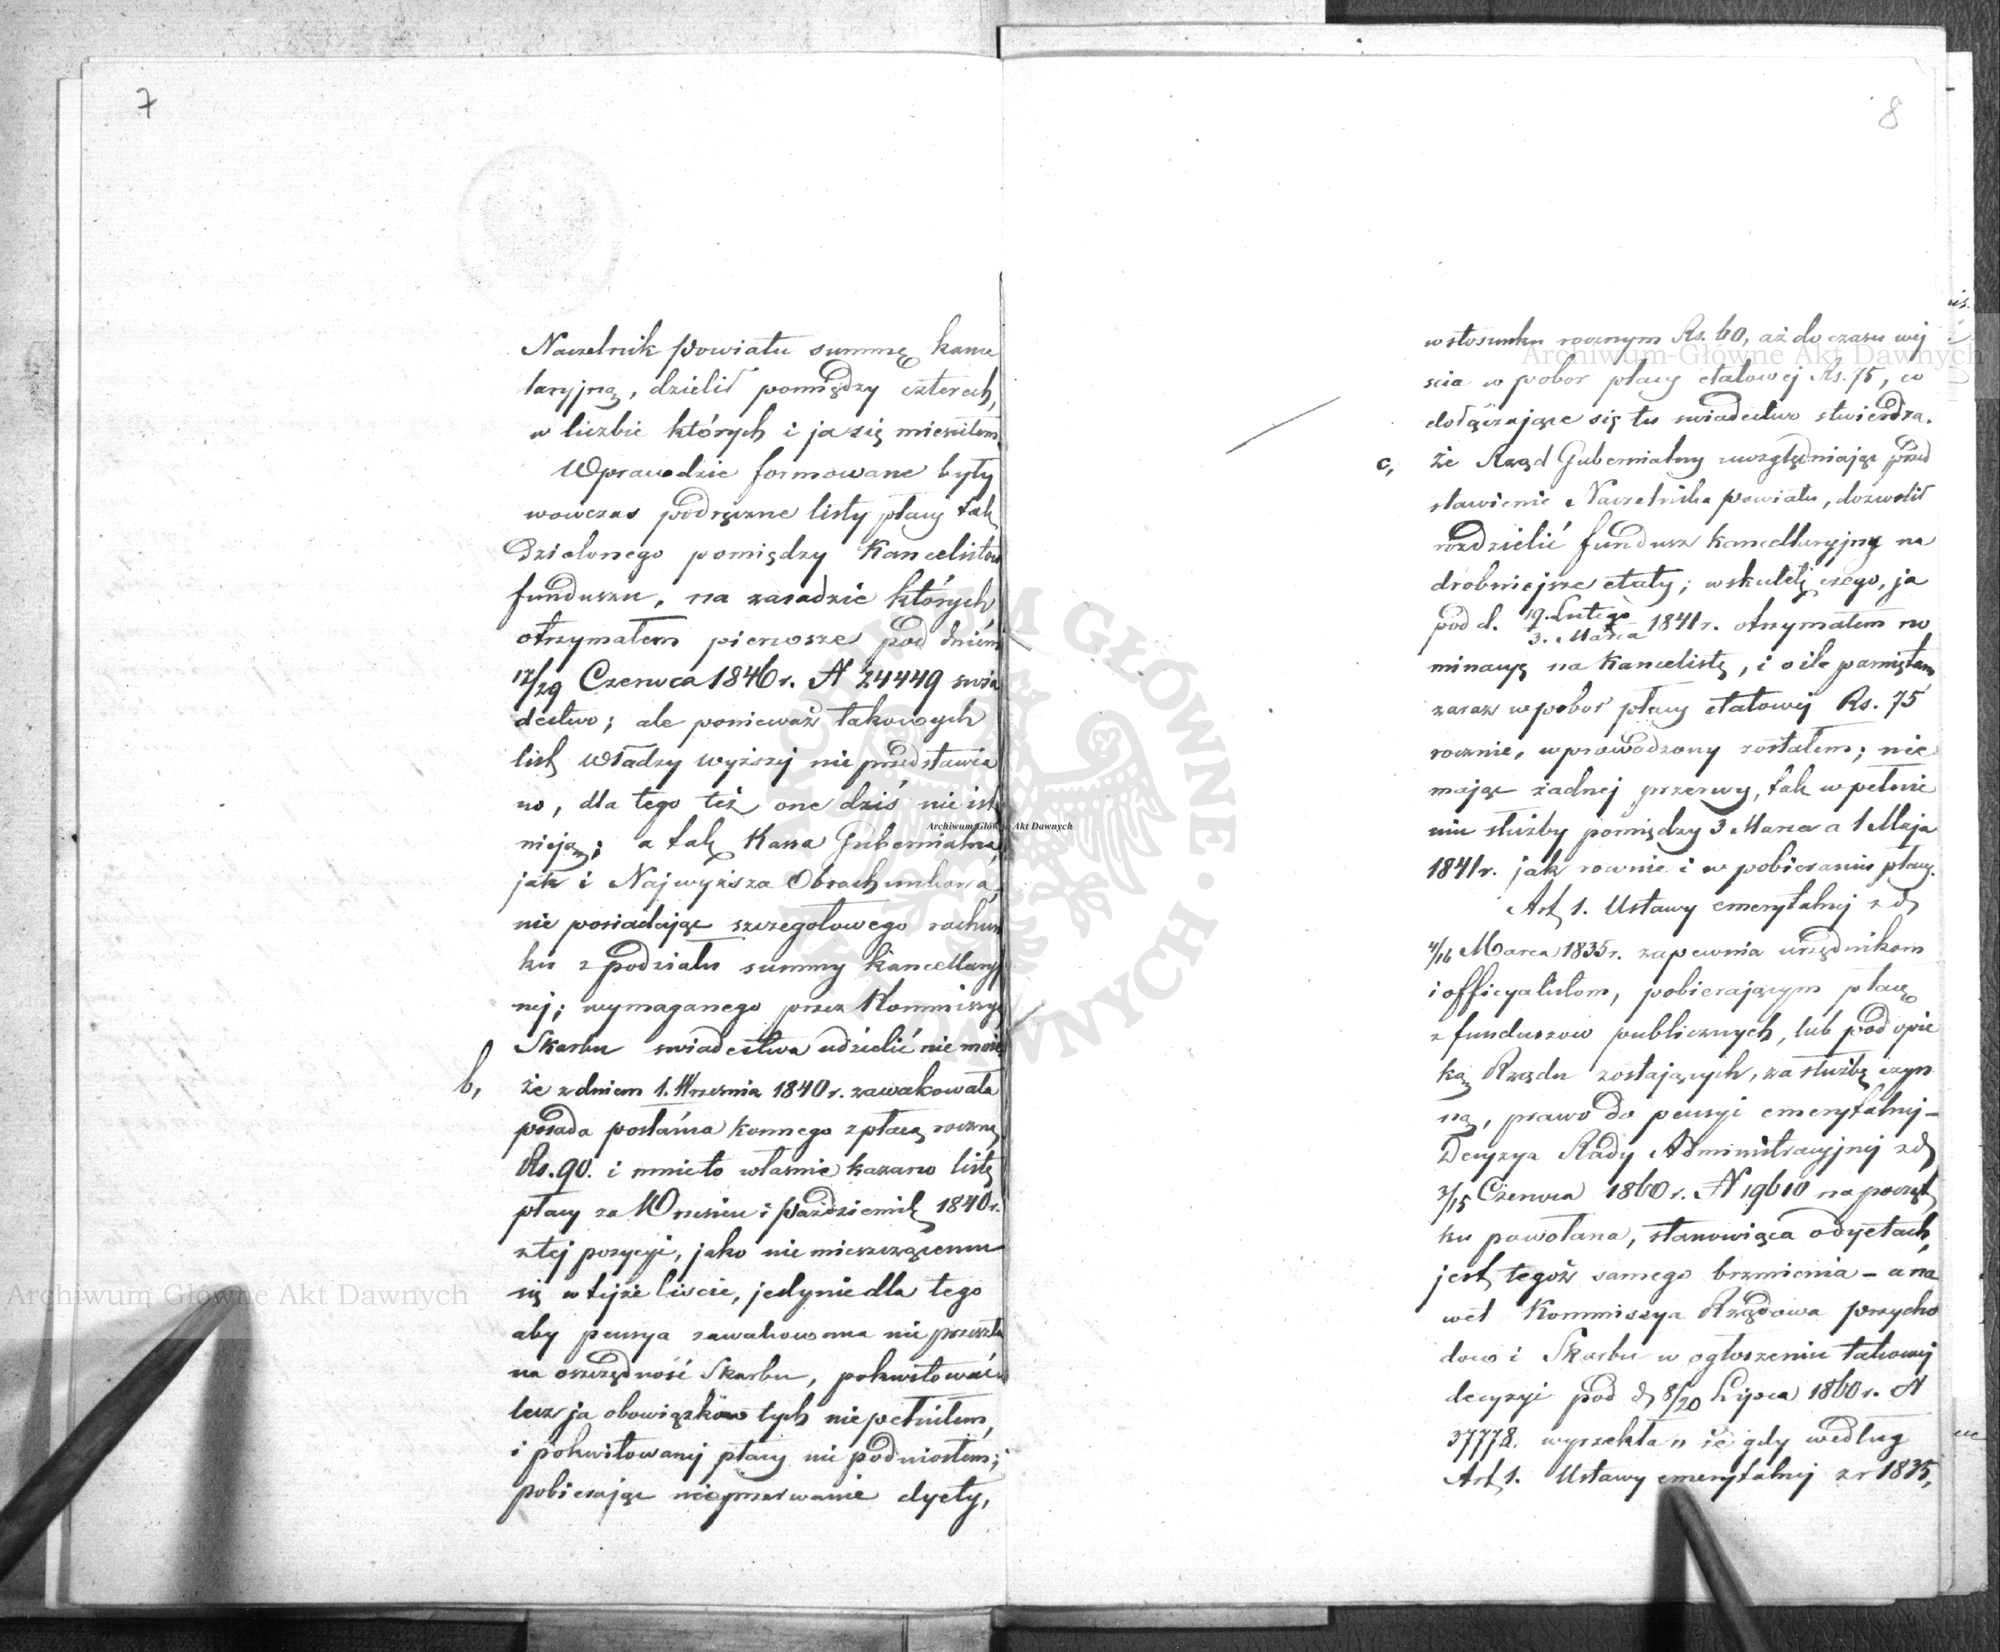 7
Naczelnik powiatu summę kance
laryjną, dzielił pomiędzy czterech,
w liczbie których i ja się mieściłem.
Wprawdzie formowane były
wowczas podręczne listy płacy tak
dzielonego pomiędzy Kancelistów
funduszu, na zasadzie których
otrzymałem pierwsze pod dniem
17/29 Czerwca 1846 r. N 24449 świa
dectwo; ale ponieważ takowych
list Władzy wyższej nie przedstawia
no, dla tego też one dziś nie ist
nieją; a tak Kassa Gubernialna,
jak i Najwyższa Obrachunkowa,
nie posiadając szczegołowego rachun
ku z podziału summy Kancellaryj
nej; wymaganego przez Kommissyą
Skarbu swiadectwa udzielić nie może
b, że z dniem 1. Września 1840 r. zawakowała
posada posłańca konnego z płacą roczną
Rs. 90. i mnie to własnie kazano listę
płacy za Wrzesien i Październik 1840 r.
z tej pozycyi, jako nie mieszczącemu
się w tejże liscie, jedynie dla tego
aby pensya zawakowana nie przeszła
na oszczędność Skarbu, pokwitować
lecz ja obowiązków tych nie pełniłem,
i pokwitowanej płacy nie podniosłem;
pobierając nieprzerwanie dyety,
8
w stosunku rocznym Rs. 60, aż do czasu wej
scia w pobor płacy etatowej Rs. 75, co
dołączające się tu swiadectwo stwierdza.
c, że Rząd Gubernialny uwzględniając przed
stawienie Naczelnika powiatu, dozwolił
rozdzielić fundusz kancellaryjny na
drobniejsze etaty; w skutek czego, ja
pod d. 19. Lutego / 3. Marca 1841 r. otrzymałem no
minacyą na Kancelistę, i o ile pamiętam
zaraz w pobor płacy etatowej Rs. 75
rocznie, wprowadzony zostałem; nie
mając żadnej przerwy, tak w pełnie
niu służby pomiędzy 3 Marca a 1 Maja
1841 r. jak rownie i w pobieraniu płacy.
Art. 1. Ustawy emerytalnej z d.
4/16 Marca 1835 r. zapewnia urzędnikom
i officyalistom, pobierającym płacę
z funduszow publicznych, lub pod opie
ką Rządu zostających, za służbę czyn
ną, prawo do pensyi emerytalnej –
Decyzya Rady Administracyjnej z d.
3/15 Czerwca 1860 r. N 19610 na począt
ku powołana, stanowiąca o dyetach,
jest tegoż samego brzmienia – a na
wet Kommissya Rządowa Przycho
dow i Skarbu w ogłoszeniu takowej
decyzyi pod d. 8/20 Lipca 1860 r. N
37778. wyrzekła „że gdy według
Art. 1. Ustawy emerytalnej z r 1835,
Archiwum Główne Akt Dawnych
Archiwum Główne Akt Dawnych
Archiwum Główne Akt Dawnych
ARCHIWUM GŁÓWNE AKT DAWNYCH